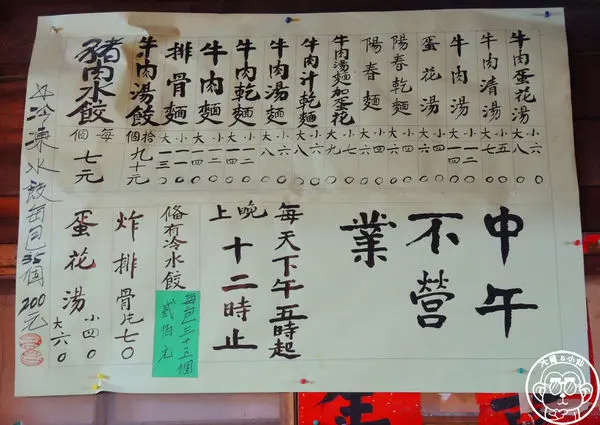 牛肉蛋花湯 小六〇 大八〇
牛肉清湯 小五〇 大七〇
牛肉湯 小一二〇 大一四〇
蛋花湯 小四〇 大六〇
陽春乾麵 小四〇 大六〇
陽春麵 小四〇 大六〇
牛肉湯麵加蛋花 小七〇 大九〇
牛肉汁乾麵 小六〇 大八〇
牛肉湯麵 小六〇 大八〇
牛肉乾麵 小一二〇 大一四〇
牛肉麵 小一二〇 大一四〇
排骨麵 小一一〇 大一三〇
牛肉湯餃 拾個 九十元
豬肉水餃 每個 七元
中午
不營
業
每天下午五時起
晚上十二時止
備有冷水餃
每包三十五個
貳佰元
炸排骨片七〇
蛋花湯 小四〇 大六〇
冷凍水餃每包35個200元
大鳳&小灿